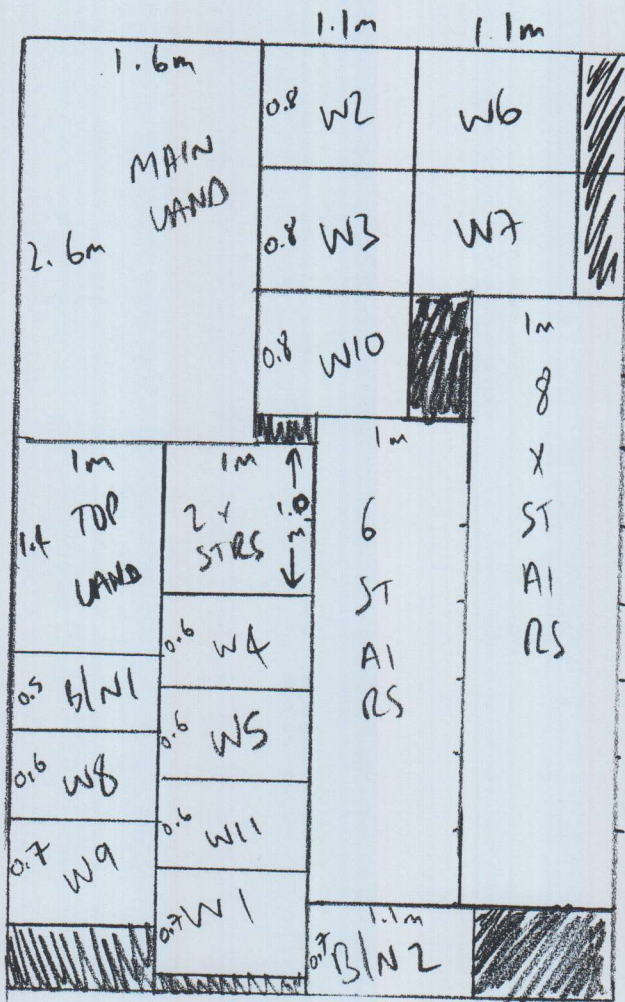 1.1m 1.1m
1.6m
MAIN
LAND
2.6m
0.8 W2
W6
0.8 W3
W7
0.8 W10
1m
8
X
ST
AI
RS
1m
6
ST
AI
RS
1m
TOP
LAND
1.4
1m
2 X
STRS
1.0
m
0.6 W4
0.5 B/N1
0.6 W5
0.6 W8
0.6 W11
0.7 W9
0.7 W1
1.1m
0.7 B/N2